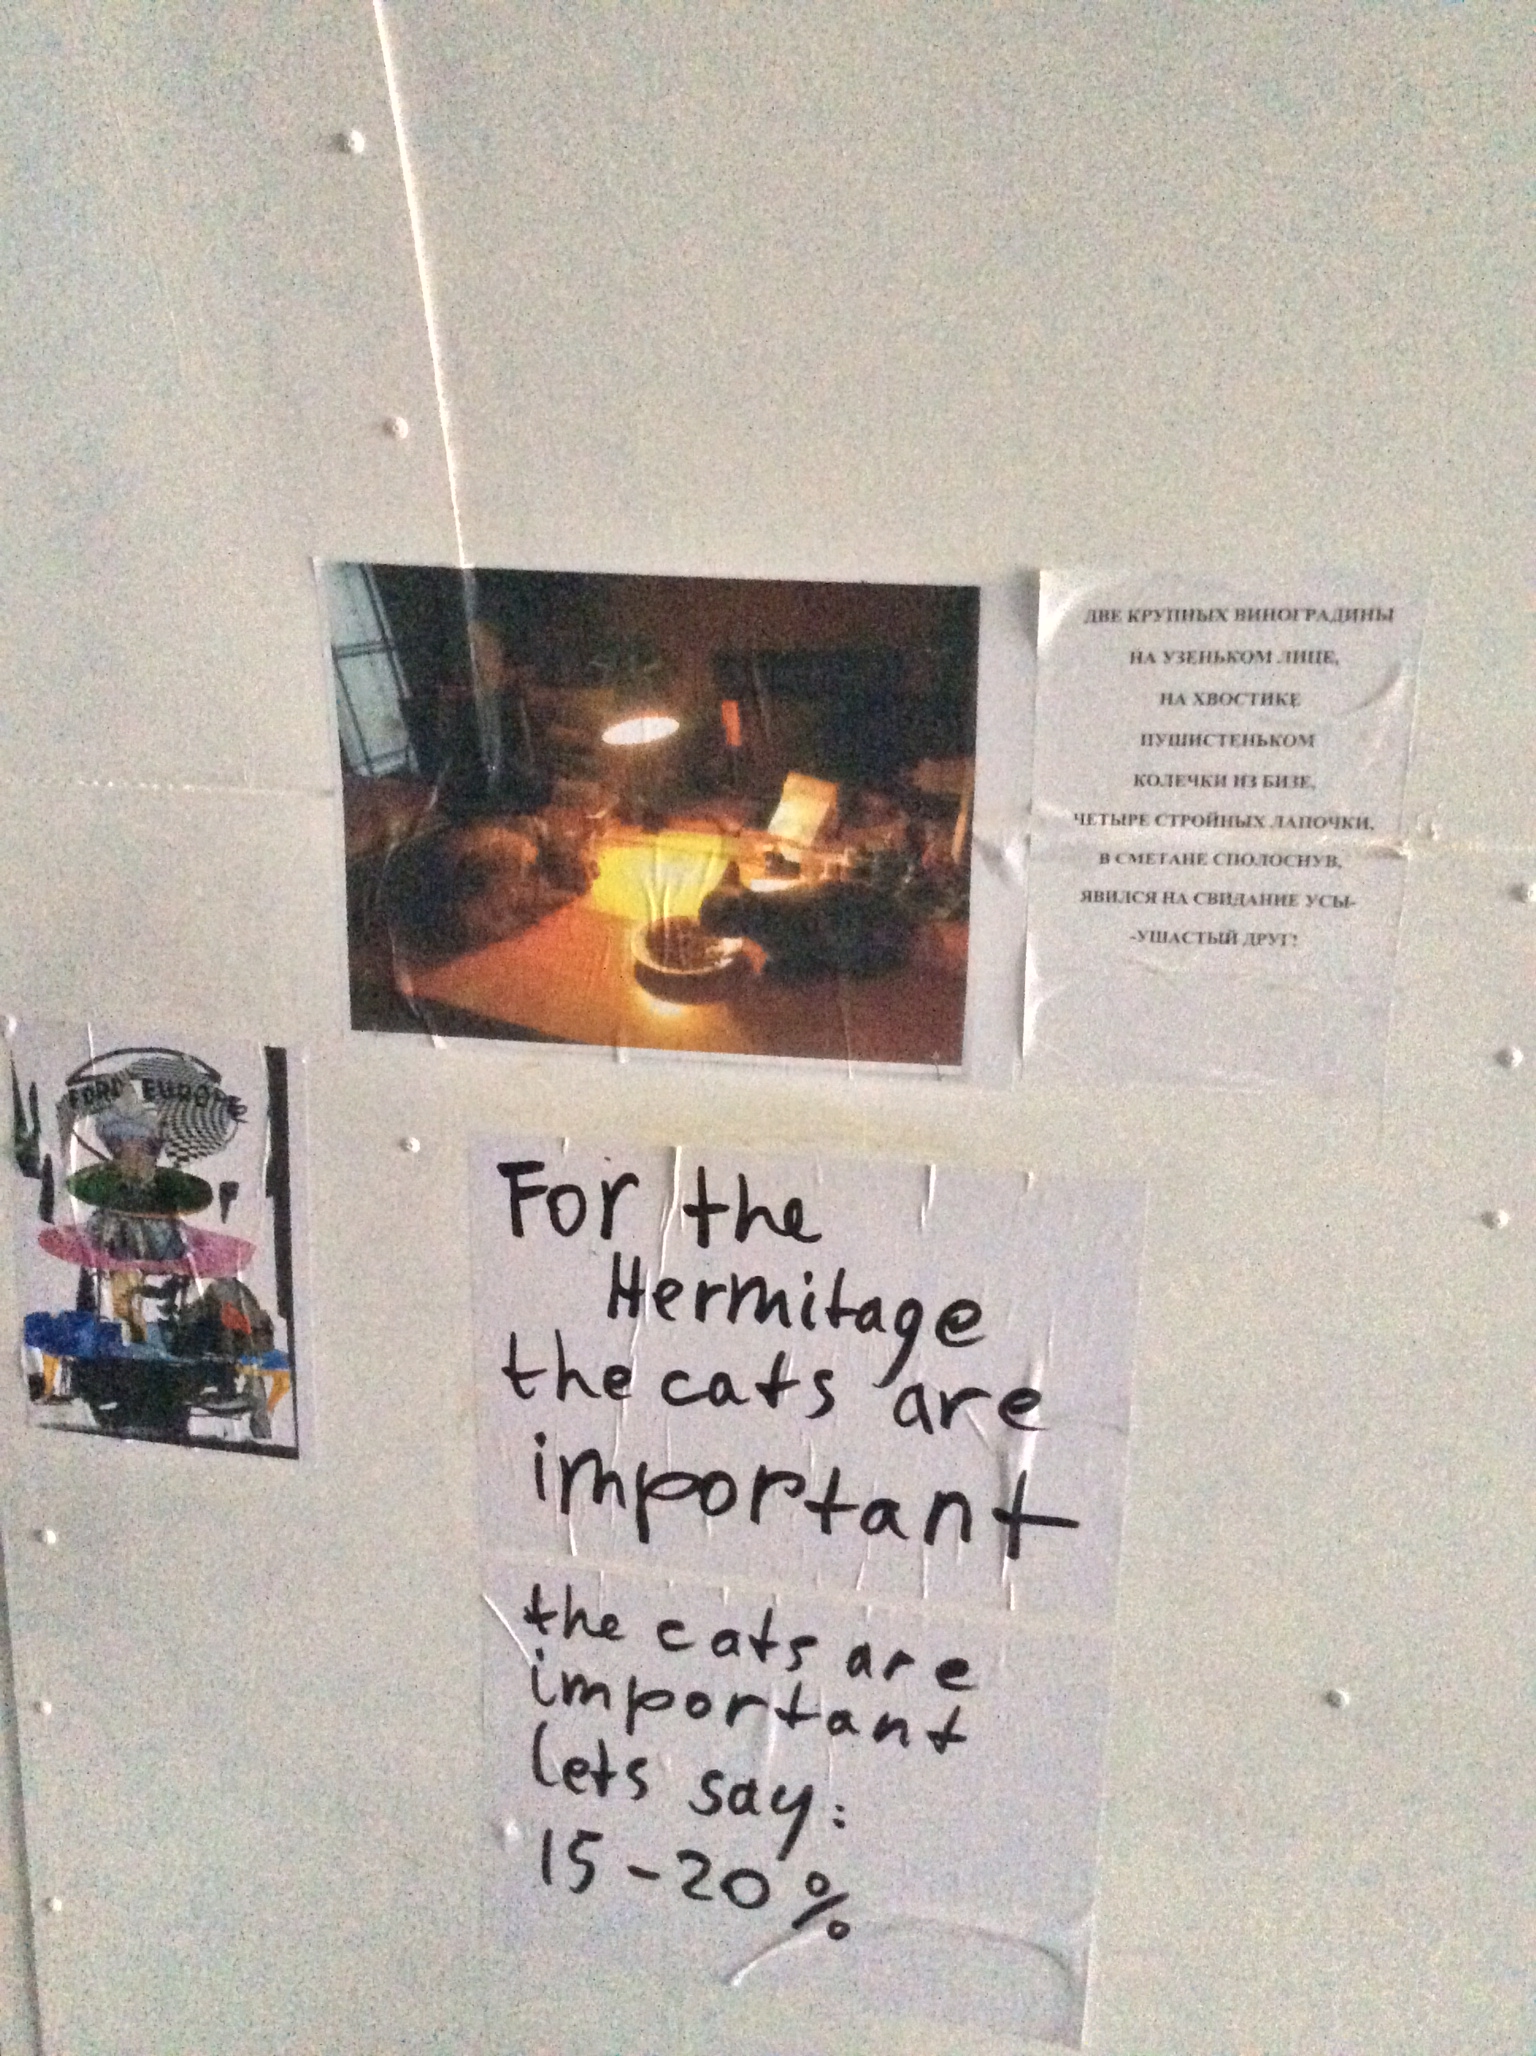 ДВЕ КРУПНЫХ ВИНОГРАДИНЫ
НА УЗЕНЬКОМ ЛИЦЕ,
НА ХВОСТИКЕ
ПУШИСТЕНЬКОМ
КОЛЕЧКИ ИЗ БИЗЕ,
ЧЕТЫРЕ СТРОЙНЫХ ЛАПОЧКИ,
В СМЕТАНЕ СПОЛОСНУВ,
ЯВИЛСЯ НА СВИДАНИЕ УСЫ-
-УШАСТЫЙ ДРУГ!
FORD EUROPE
For the
Hermitage
the cats are
important
the cats are
important
lets say:
15-20%